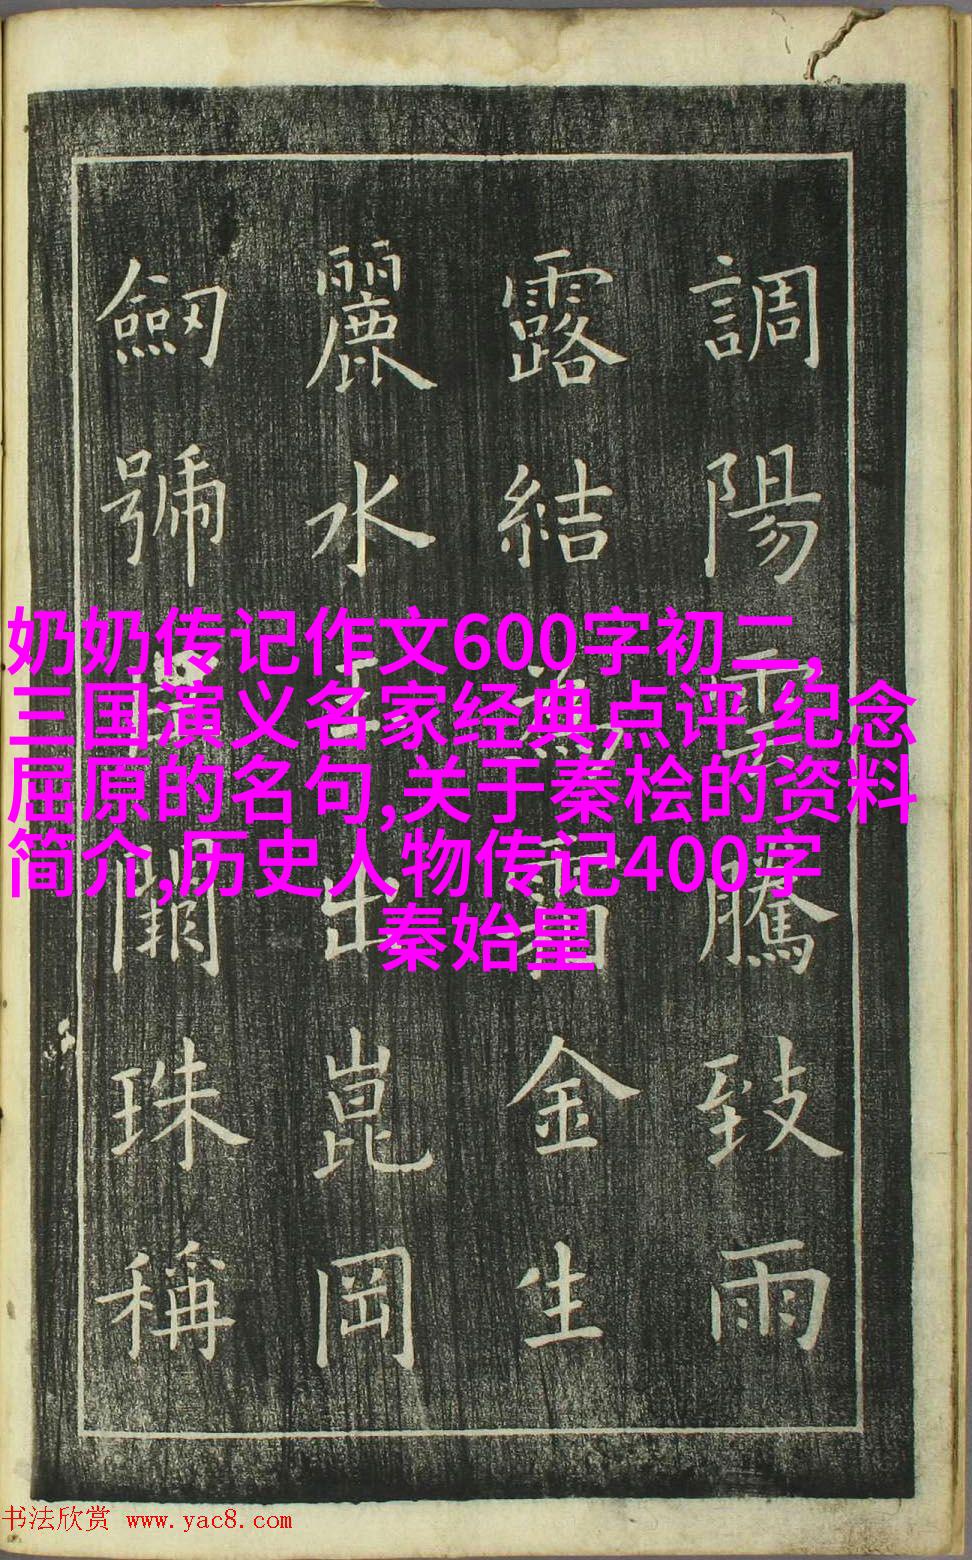 調陽雲騰致雨
露結為霜金生
麗水出崑岡
劒號闕珠稱
奶奶传记作文600字初二,
三国演义名家经典点评,纪念
屈原的名句,关于秦桧的资料
简介,历史人物传记400字
秦始皇
书法欣赏 www.yac8.com